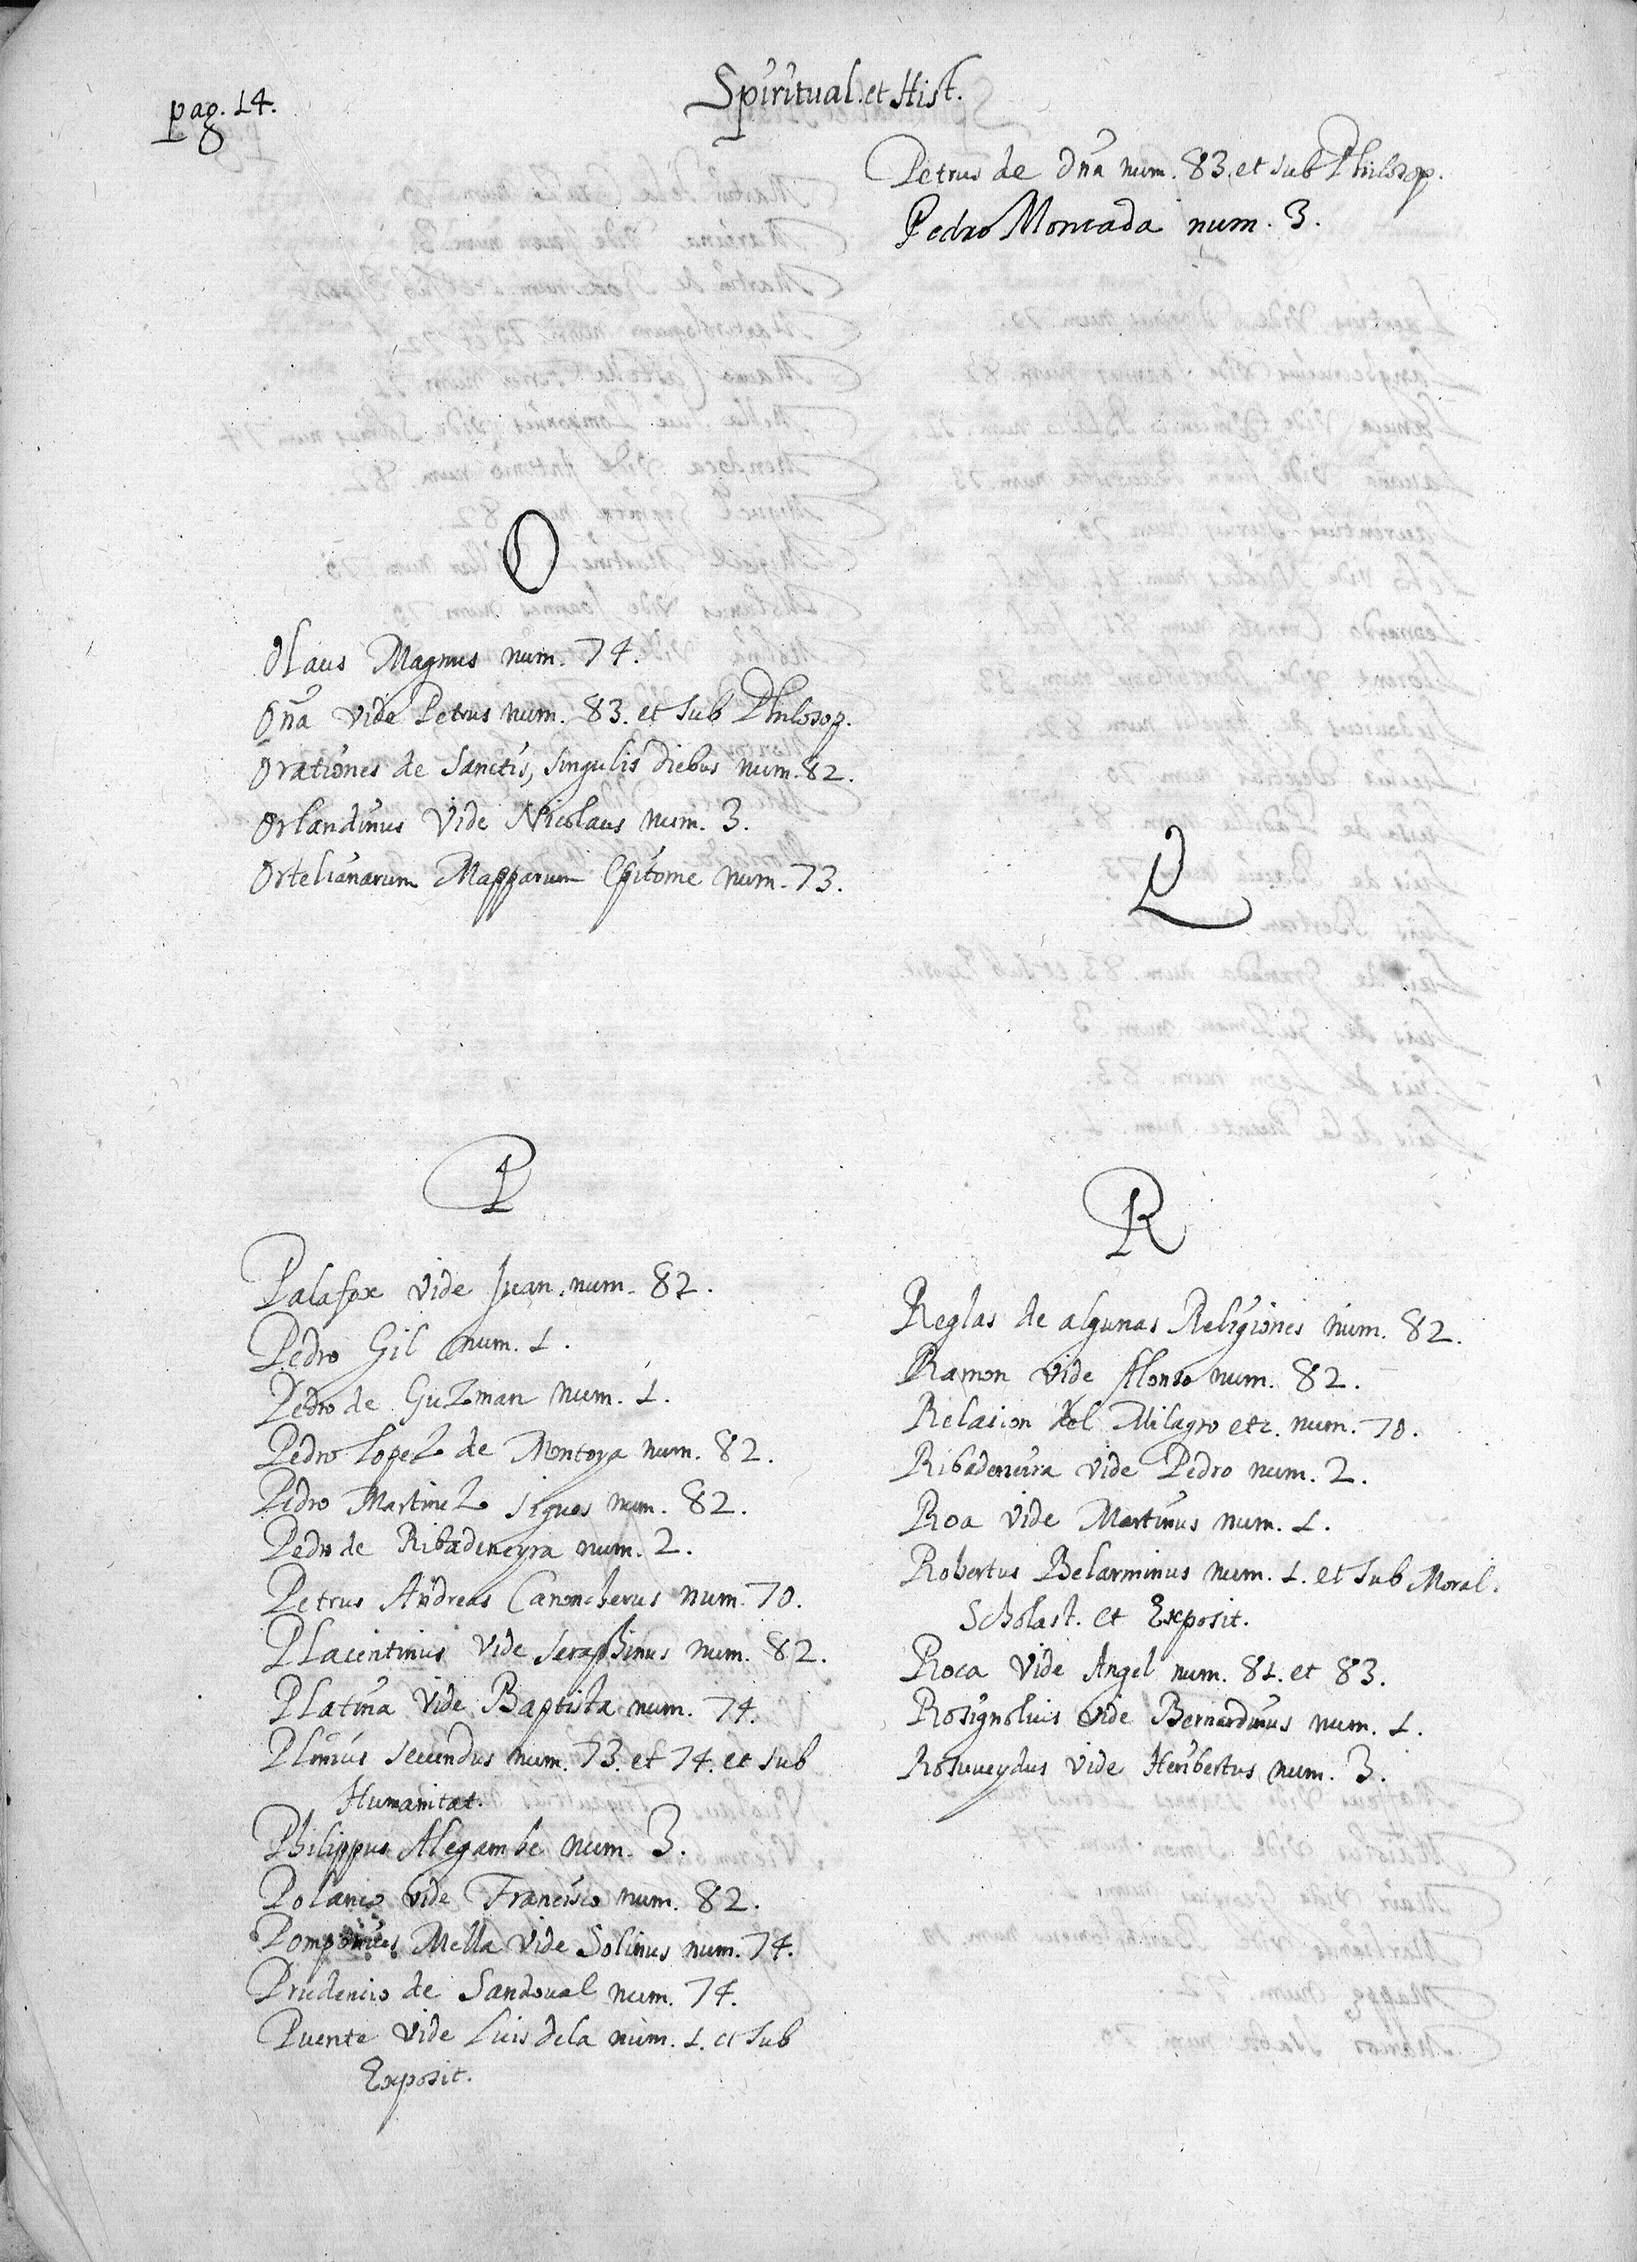 pag. 14.
Spiritual. et Hist.
O
Olaus Magnus num. 74.
Oña vide Petrus num. 83. et sub Philosop.
Orationes de Sanctis, singulis diebus num. 82.
Orlandinus vide Nicolaus num. 3.
Ortelianarum Mapparum Epitome num. 73.
P
Palafox vide Juan. num. 82.
Pedro Gil num. 1.
Pedro de Guzman num. 1.
Pedro Lopez de Montoya num. 82.
Pedro Martinez sigues num. 82.
Pedro de Ribadeneyra num. 2.
Petrus Andreas Canoncherus num. 70.
Placentinus vide Seraphinus num. 82.
Platina vide Baptista num. 74.
Plinius secundus num. 73. et 74. et sub
Humanitat.
Philippus Alegambe num. 3.
Polanco vide Francisco num. 82.
Pomponius Mella vide Solinus num. 74.
Prudencio de Sandoval num. 74.
Puente vide Luis dela num. 1. et sub
Exposit.
Petrus de Oña num. 83. et sub Philosop.
Pedro Moncada num. 3.
Q
R
Reglas de algunas Religiones num. 82.
Ramon vide Alonso num. 82.
Relacion del Milagro etc. num. 70.
Ribadeneira vide Pedro num. 2.
Roa vide Martinus num. 1.
Robertus Belarminus num. 1. et sub Moral.
Scholast. et Exposit.
Roca vide Angel num. 81. et 83.
Rosignolius vide Bernardinus num. 1.
Rosuueydus vide Heribertus num. 3.